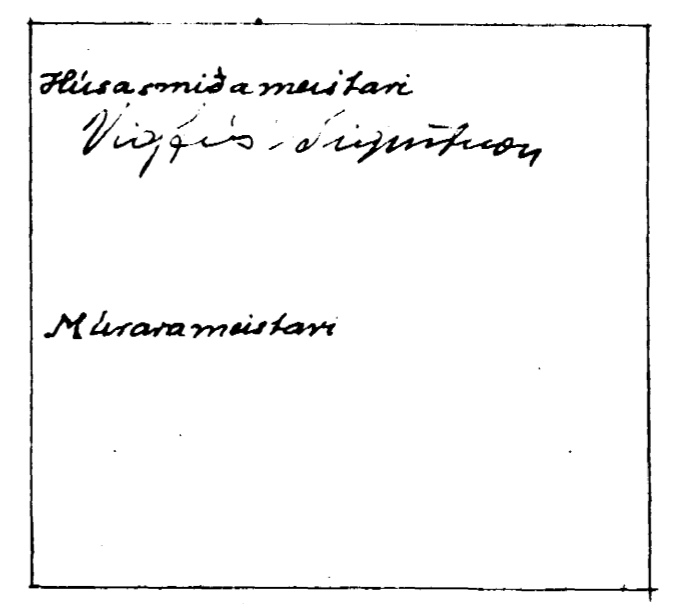 Húsasmiðameistari
Vigfús Sigurðsson
Múrarameistari